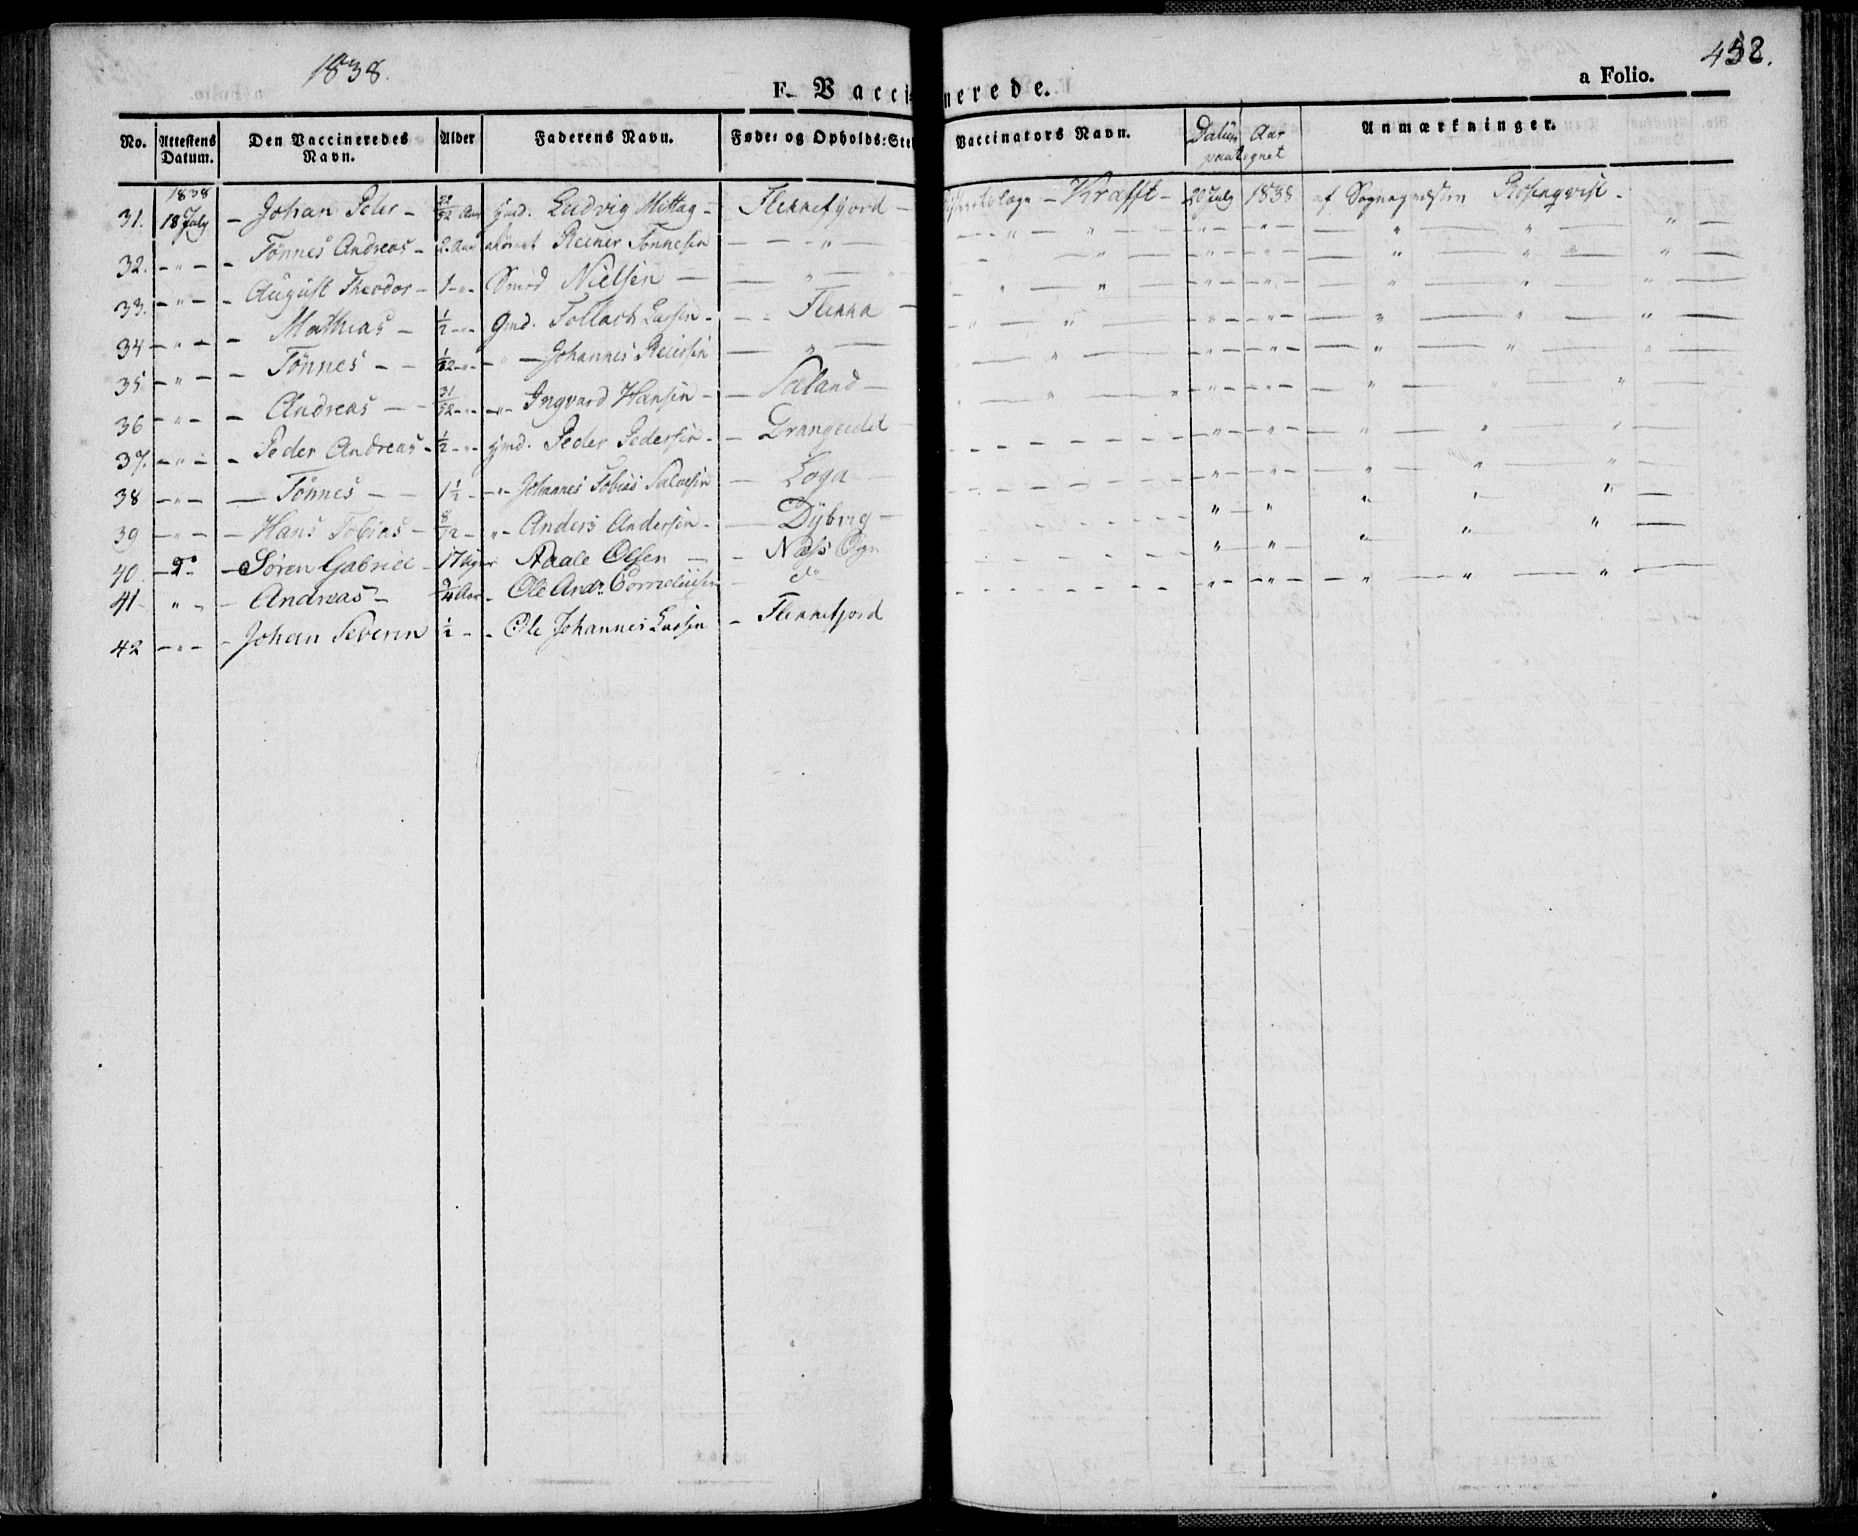 1838.
452.
F. Vaccinerede.
a Folio.
No. Attestens Datum. Den Vaccineredes Navn. Alder Faderens Navn. Føde- og Opholds-Sted Vaccinators Navn. Datum Aar paategnet Anmærkninger.
1838
31. 18 July - Johan Peder - 22/52 Aar Gmd. Ludvig Mittag - Flekkefjord - Districtslægn - Krafft - 20 July 1838 af Sognepræsten Rosenqvist -
32. - " - - Tønnes Andreas - 2 Aar Reiner Tønnesen - - " -
33. - " - - August Theodor - 1 - " - Smed Nielsen - - " -
34 - " - - Mathias - 1/2 - " - Gmd. Tollach Larsen - - Flekka -
35 - " - - Tønnes - - /52 - " - " - Johannes Reiersen - " -
36 - " - - Andreas - - 31/52 - " - - " - Ingvard Hansen - - Sæland -
37. - " - - Peder Andreas - 1/2 - " - Gmd. Peder Pedersen - - Drangeidet -
38 - " - - Tønnes - - 1 1/2 - - " - Johannes Tobias Salvesen - Loga -
39 - " - - Hans Tobias - 8/52 - - " - Anders Andersen - - Dybvig -
40 - do - Søren Gabriel - 17 Aale Olsen - - Næss Ogn
41 - " - - Andreas - Aar - Ole Andr. Corneliusen - do
42 - " - - Johan Severin 1/2 - - Ole Johannes Larsen - Flekkefjord